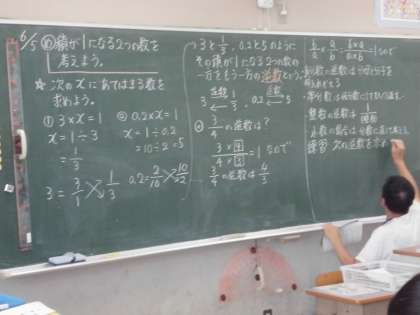 6/5 め 積が1になる2つの数を
考えよう。
☆ 次のxにあてはまる数を
求めよう。
① 3×x=1 ② 0.2×x=1
x=1÷3 x=1÷0.2
=1/3 =10÷2=5
3=3/1 1/3 0.2=2/10 10/2
3と1/3, 0.2と5のように
その積が1になる2つの数の
一方をもう一方の逆数という。
3 逆数 1/3 0.2 逆数 5
3/4の逆数は?
3×4/4×3=1なので
3/4の逆数は 4/3
b/a×a/b=b×a/a×b=1なので
分数の逆数は分母と分子を
整数の逆数は 1/整数
小数の場合は分数に直して考える。
練習 次の逆数を求め